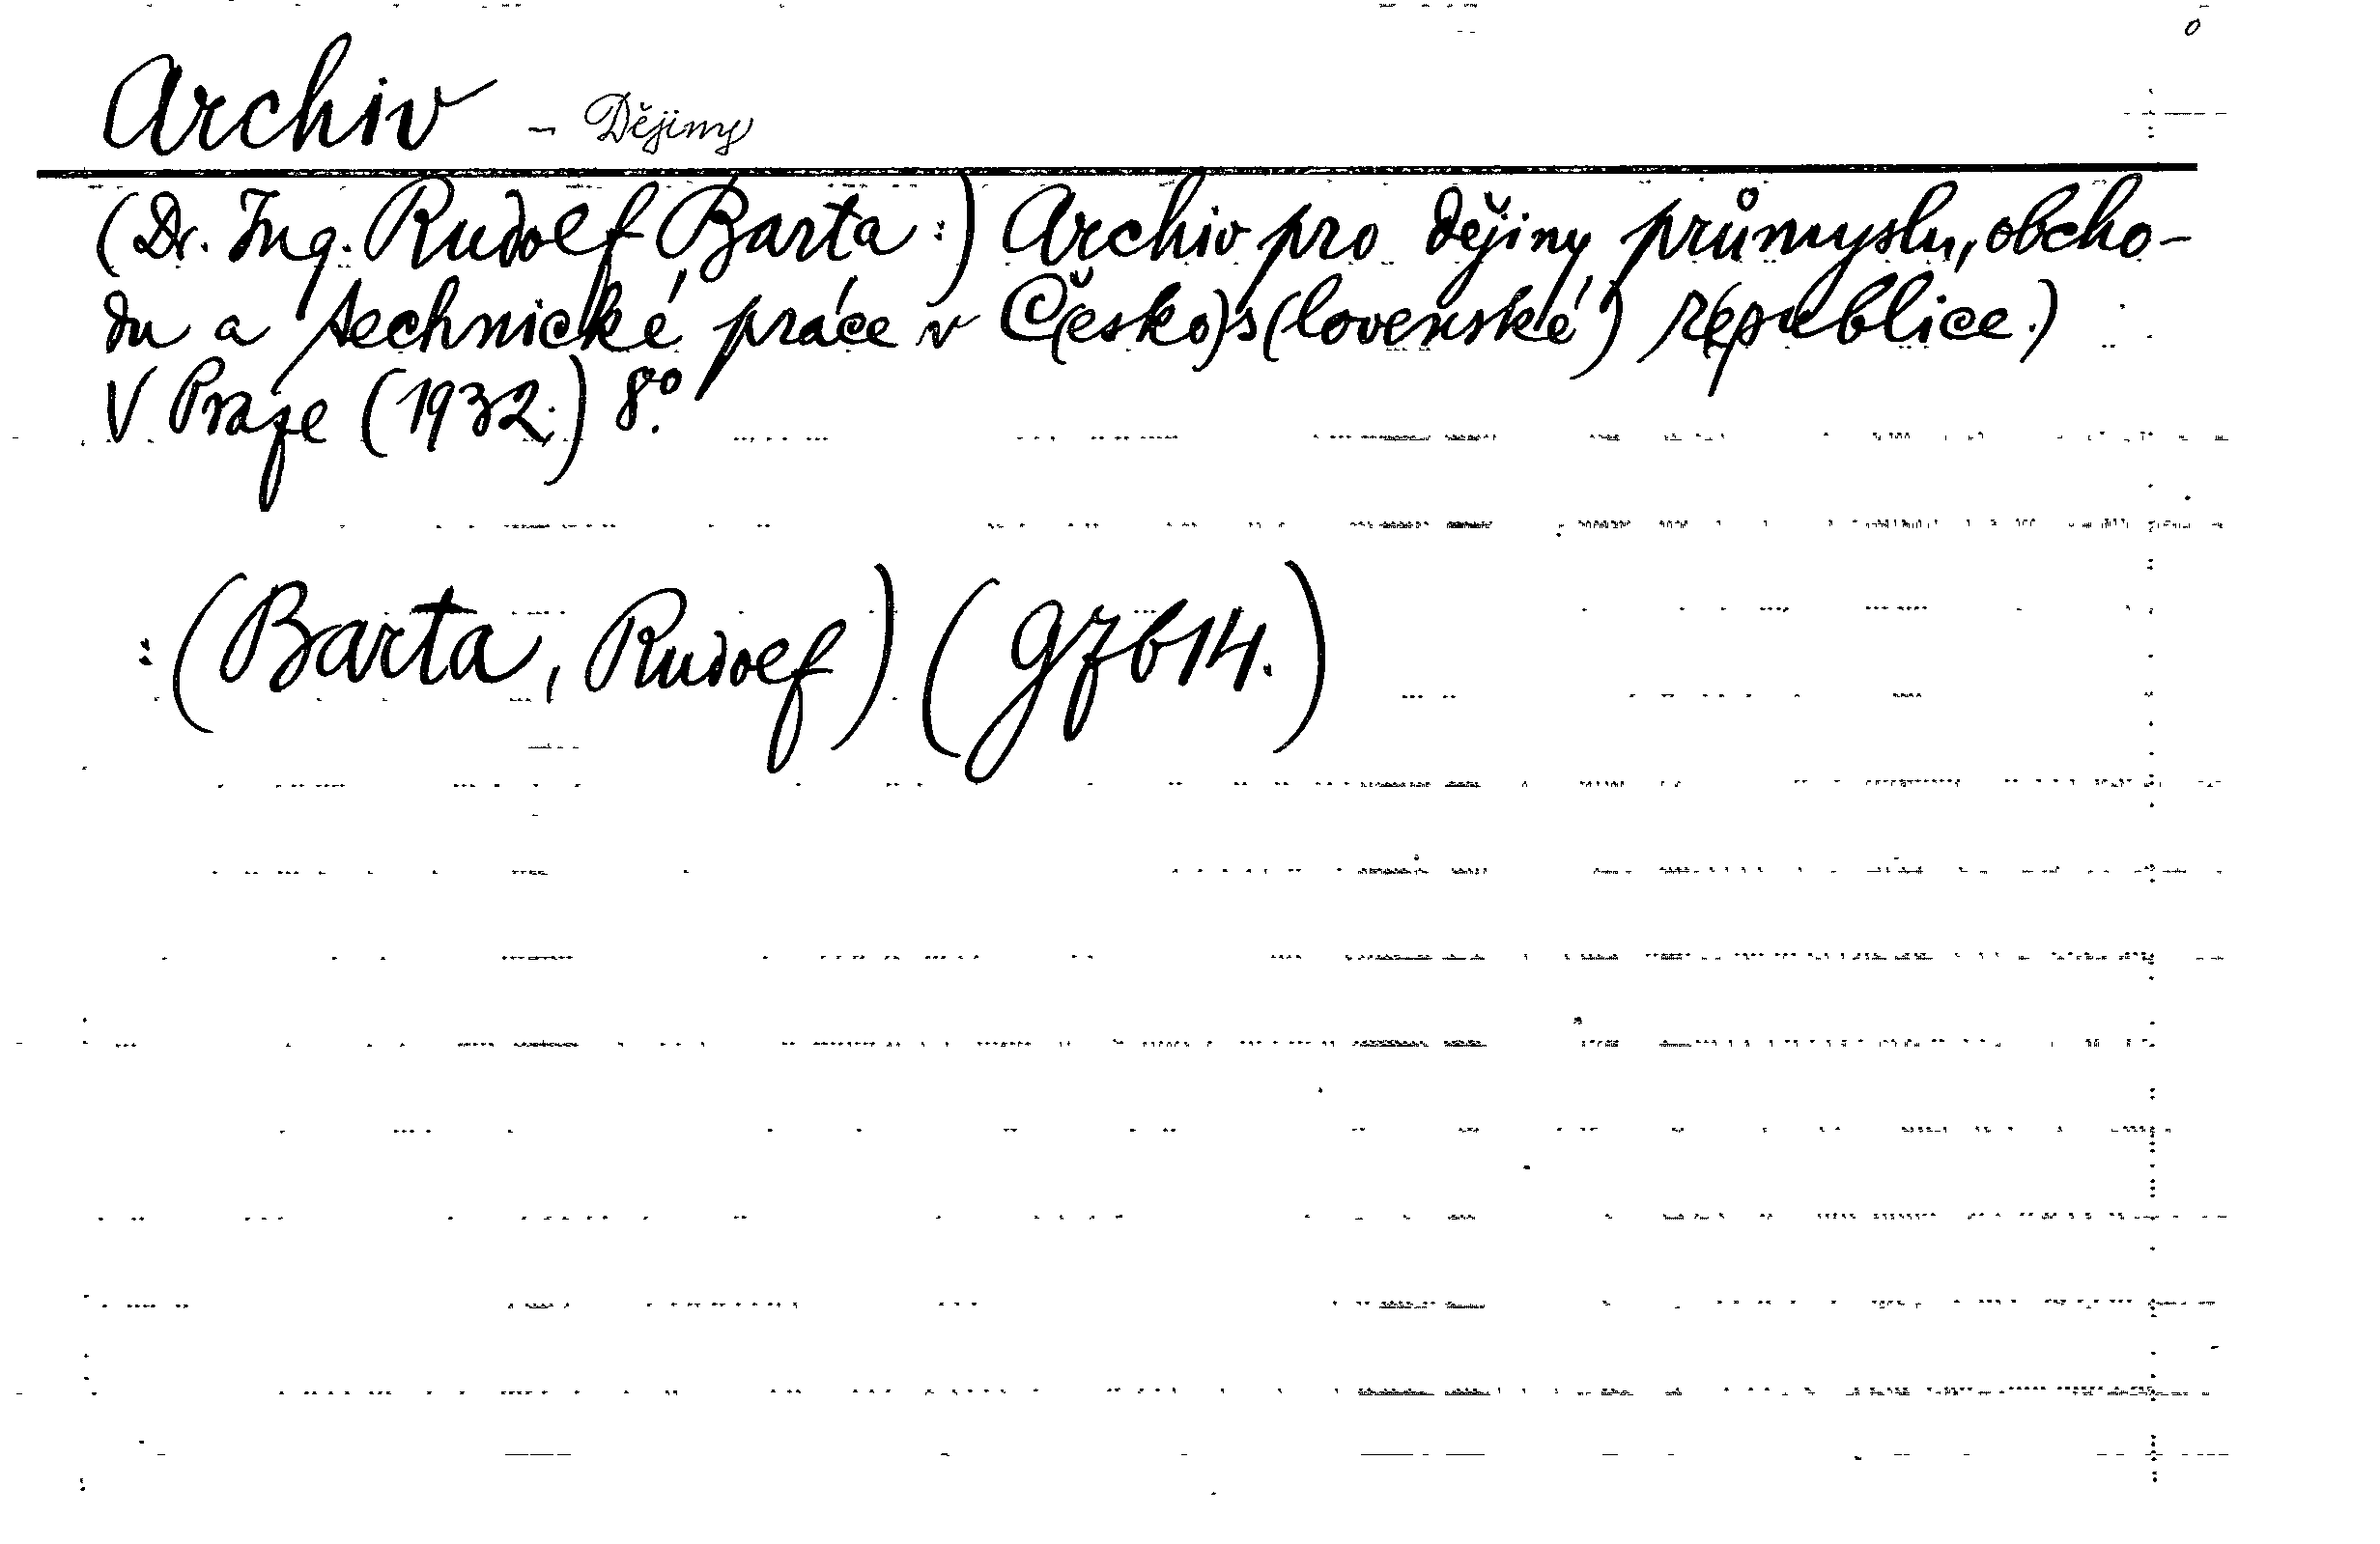 Archiv - Dějiny
(Dr. Ing. Rudolf Barta:) Archiv pro dějiny průmyslu, obcho-
du a technické práce v Č(esko)s(lovenské) r(epublice.)
V Praze (1932.) 8°.
: (Barta, Rudolf) (gzb14.)